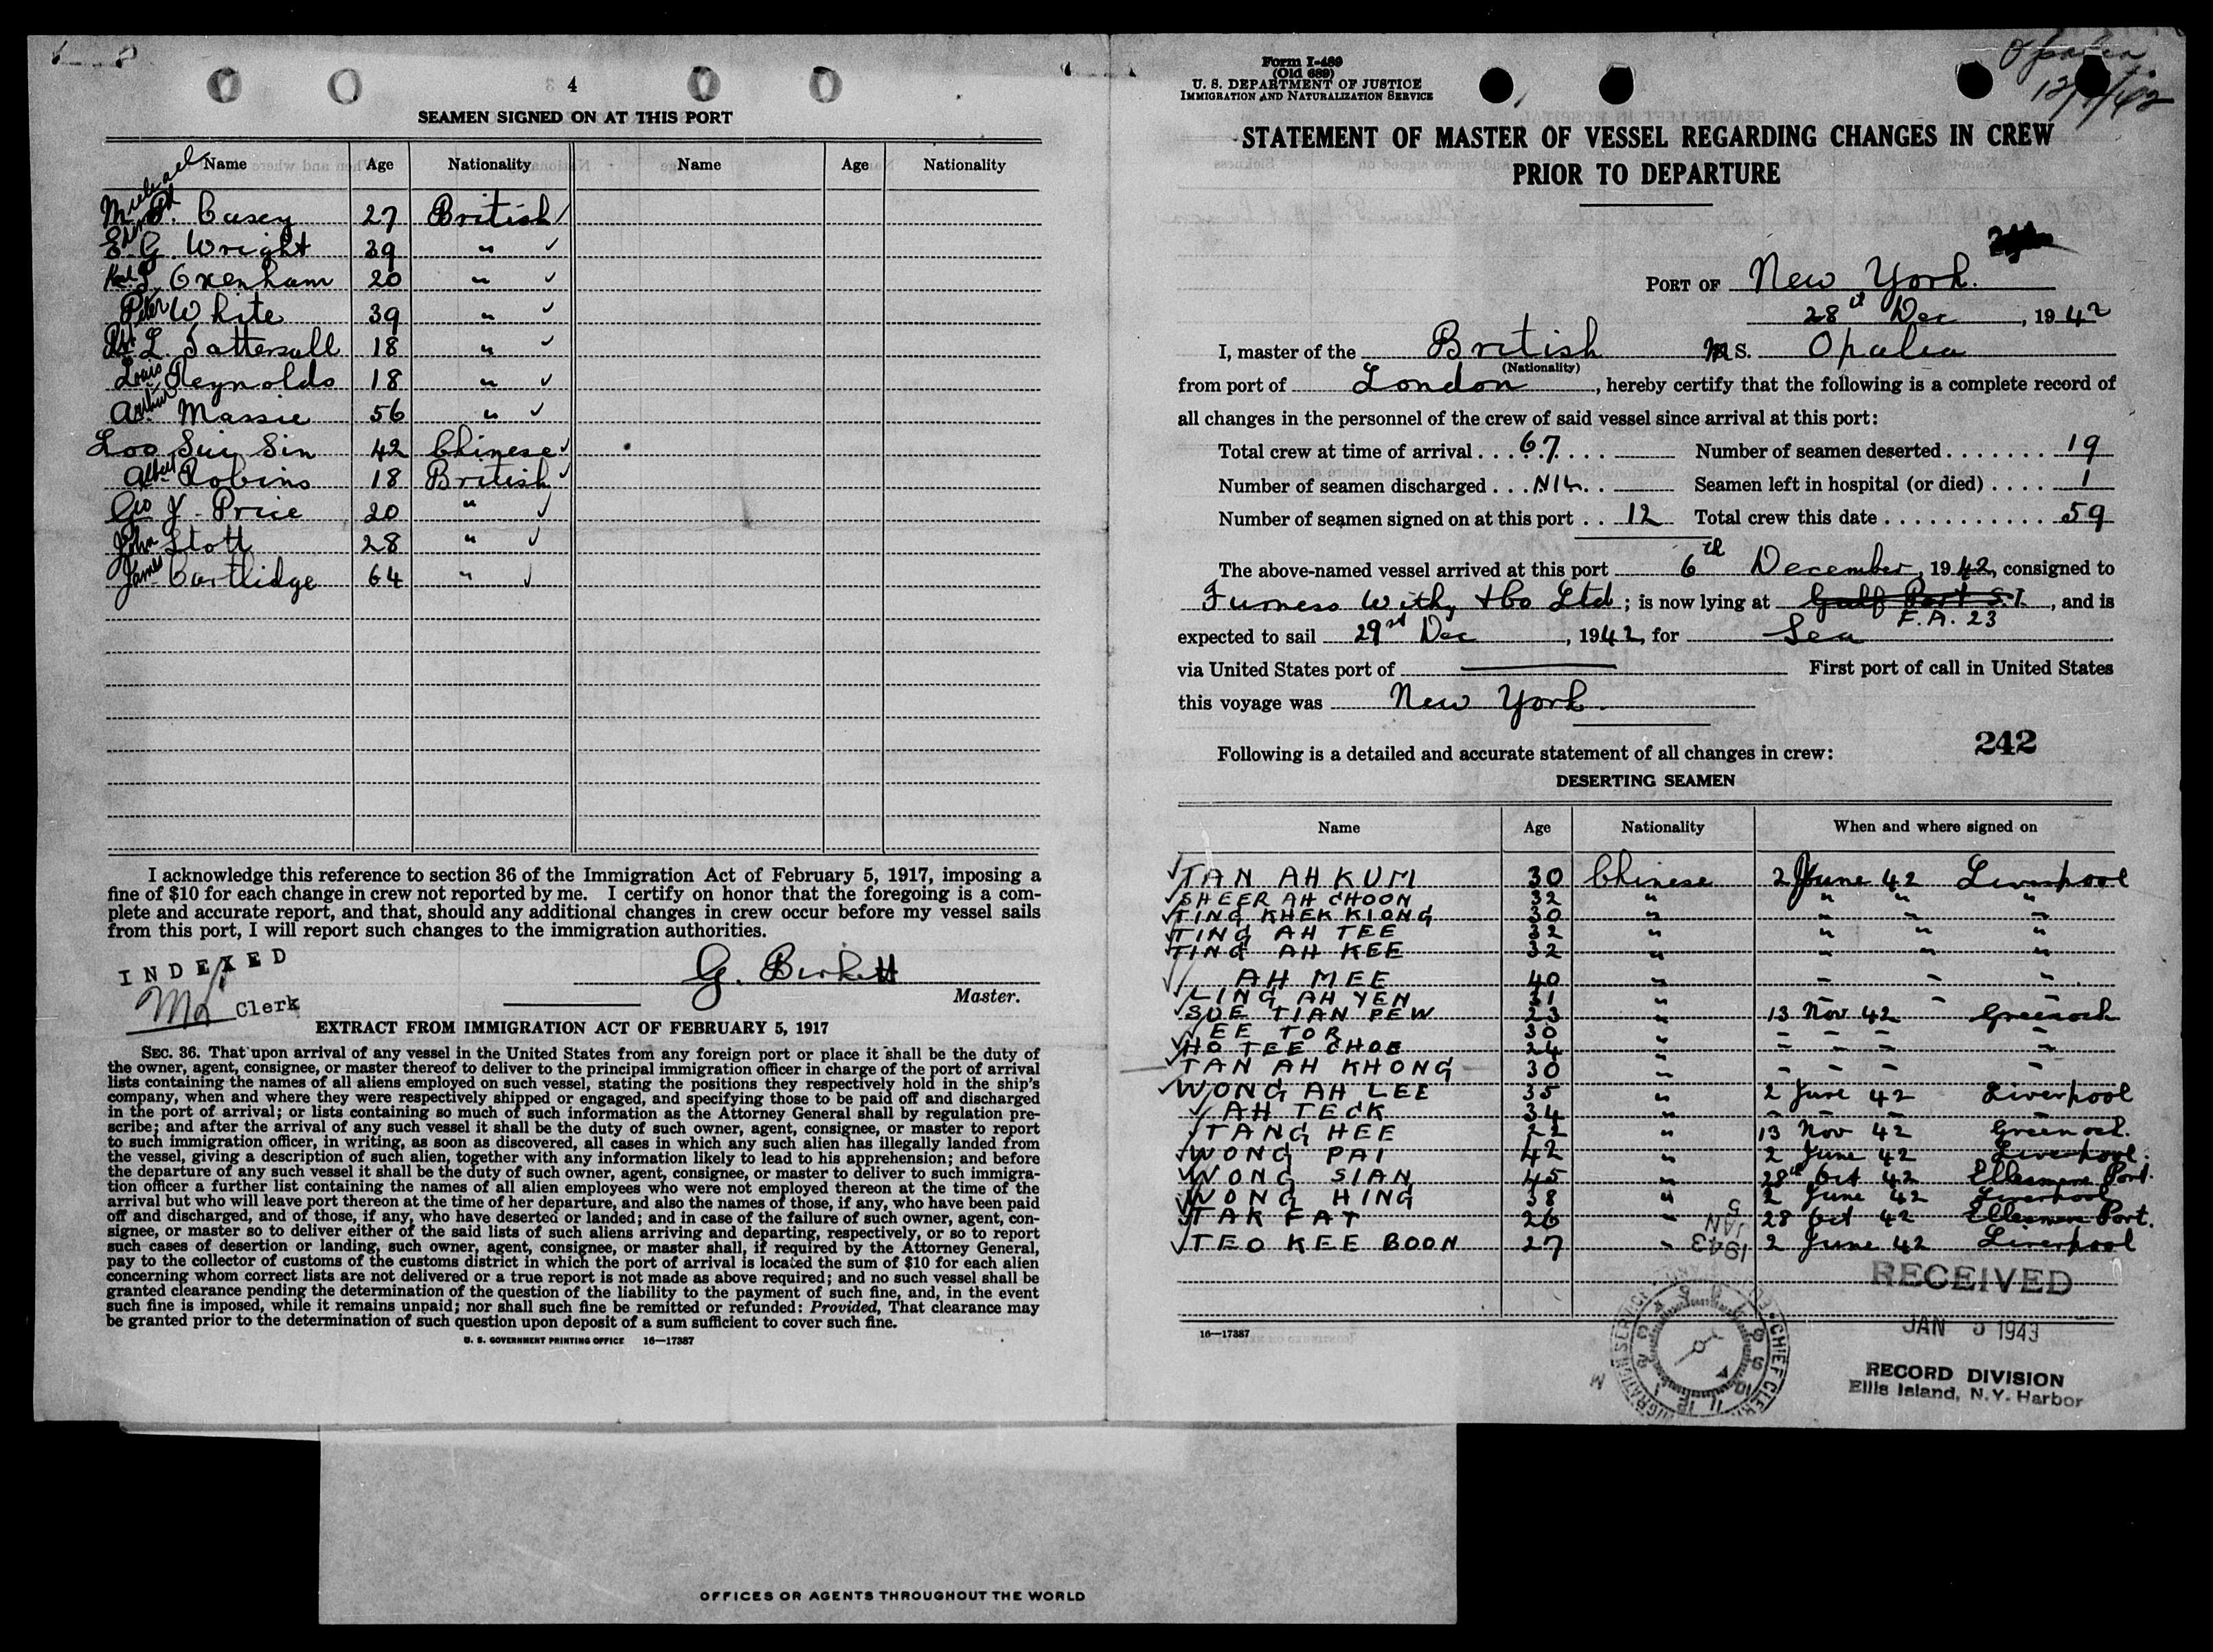 4
SEAMEN SIGNED ON AT THIS PORT
Name Age Nationality Name Age Nationality
Michael P. Casey 27 British ✓
E. G. Wright 39 " ✓
Oxenham 20 " ✓
Peter White 39 " ✓
L. Tattersall 18 " ✓
Louis Reynolds 18 " ✓
Arthur Massie 56 " ✓
Loo Sui Sin 42 Chinese ✓
Albert Robins 18 British ✓
Geo Y. Price 20 " ✓
John Stott 28 " ✓
James Cartlidge 64 " ✓
I acknowledge this reference to section 36 of the Immigration Act of February 5, 1917, imposing a
fine of $10 for each change in crew not reported by me. I certify on honor that the foregoing is a com-
plete and accurate report, and that, should any additional changes in crew occur before my vessel sails
from this port, I will report such changes to the immigration authorities.
INDEXED
Clerk
G. Birkett
Master.
EXTRACT FROM IMMIGRATION ACT OF FEBRUARY 5, 1917
SEC. 36. That upon arrival of any vessel in the United States from any foreign port or place it shall be the duty of
the owner, agent, consignee, or master thereof to deliver to the principal immigration officer in charge of the port of arrival
lists containing the names of all aliens employed on such vessel, stating the positions they respectively hold in the ship's
company, when and where they were respectively shipped or engaged, and specifying those to be paid off and discharged
in the port of arrival; or lists containing so much of such information as the Attorney General shall by regulation pre-
scribe; and after the arrival of any such vessel it shall be the duty of such owner, agent, consignee, or master to report
to such immigration officer, in writing, as soon as discovered, all cases in which any such alien has illegally landed from
the vessel, giving a description of such alien, together with any information likely to lead to his apprehension; and before
the departure of any such vessel it shall be the duty of such owner, agent, consignee, or master to deliver to such immigra-
tion officer a further list containing the names of all alien employees who were not employed thereon at the time of the
arrival but who will leave port thereon at the time of her departure, and also the names of those, if any, who have been paid
off and discharged, and of those, if any, who have deserted or landed; and in case of the failure of such owner, agent, con-
signee, or master so to deliver either of the said lists of such aliens arriving and departing, respectively, or so to report
such cases of desertion or landing, such owner, agent, consignee, or master shall, if required by the Attorney General,
pay to the collector of customs of the customs district in which the port of arrival is located the sum of $10 for each alien
concerning whom correct lists are not delivered or a true report is not made as above required; and no such vessel shall be
granted clearance pending the determination of the question of the liability to the payment of such fine, and, in the event
such fine is imposed, while it remains unpaid; nor shall such fine be remitted or refunded: Provided, That clearance may
be granted prior to the determination of such question upon deposit of a sum sufficient to cover such fine.
U. S. GOVERNMENT PRINTING OFFICE 16—17387
Form I-489
(Old 689)
U. S. DEPARTMENT OF JUSTICE
IMMIGRATION AND NATURALIZATION SERVICE
Opalia
STATEMENT OF MASTER OF VESSEL REGARDING CHANGES IN CREW
PRIOR TO DEPARTURE
PORT OF New York.
28th Dec, 1942
I, master of the British MS. Opalia
(Nationality)
from port of London, hereby certify that the following is a complete record of
all changes in the personnel of the crew of said vessel since arrival at this port:
Total crew at time of arrival . . . 67 . . . . Number of seamen deserted . . . . . . . 19
Number of seamen discharged . . . NIL . . Seamen left in hospital (or died) . . . . 1
Number of seamen signed on at this port . . 12 Total crew this date . . . . . . . . . . . 59
The above-named vessel arrived at this port 6th December, 1942, consigned to
Furness Withy & Co Ltd; is now lying at Gulf Port S.I., and is
F.A. 23
expected to sail 29st Dec, 1942, for Sea
via United States port of First port of call in United States
this voyage was New York.
242
Following is a detailed and accurate statement of all changes in crew:
DESERTING SEAMEN
Name Age Nationality When and where signed on
✓ TAN AH KUM 30 Chinese 2 June 42 Liverpool
✓ SHEER AH CHOON 32 " " " "
✓ TING KHEK KIONG 30 " " " "
✓ TING AH TEE 32 " " " "
TING AH KEE 32 " " "
✓ AH MEE 40 " " " "
✓ LING AH YEN 31 " " " "
✓ SUE TIAN PEW 23 " 13 Nov 42 Greenock
✓ EE TOR 30 " " " " "
✓ HO TEE CHOE 24 " " " " "
TAN AH KHONG 30 " " " " "
✓ WONG AH LEE 35 " 2 June 42 Liverpool
✓ AH TECK 34 " " " " "
✓ TANG HEE 22 " 13 Nov 42 Greenock.
✓ WONG PAI 42 " 2 June 42 Liverpool.
✓ WONG SIAN 45 " 28th Oct 42 Ellesmere Port.
✓ WONG HING 38 " 2 June 42 Liverpool
✓ TAK FAT 26 " 28 Oct 42 Ellesmere Port.
✓ TEO KEE BOON 27 " 2 June 42 Liverpool
JAN 5 1943
RECEIVED
JAN 5 1943
RECORD DIVISION
Ellis Island, N.Y. Harbor
CHIEF CLERK
16—17387
OFFICES OR AGENTS THROUGHOUT THE WORLD